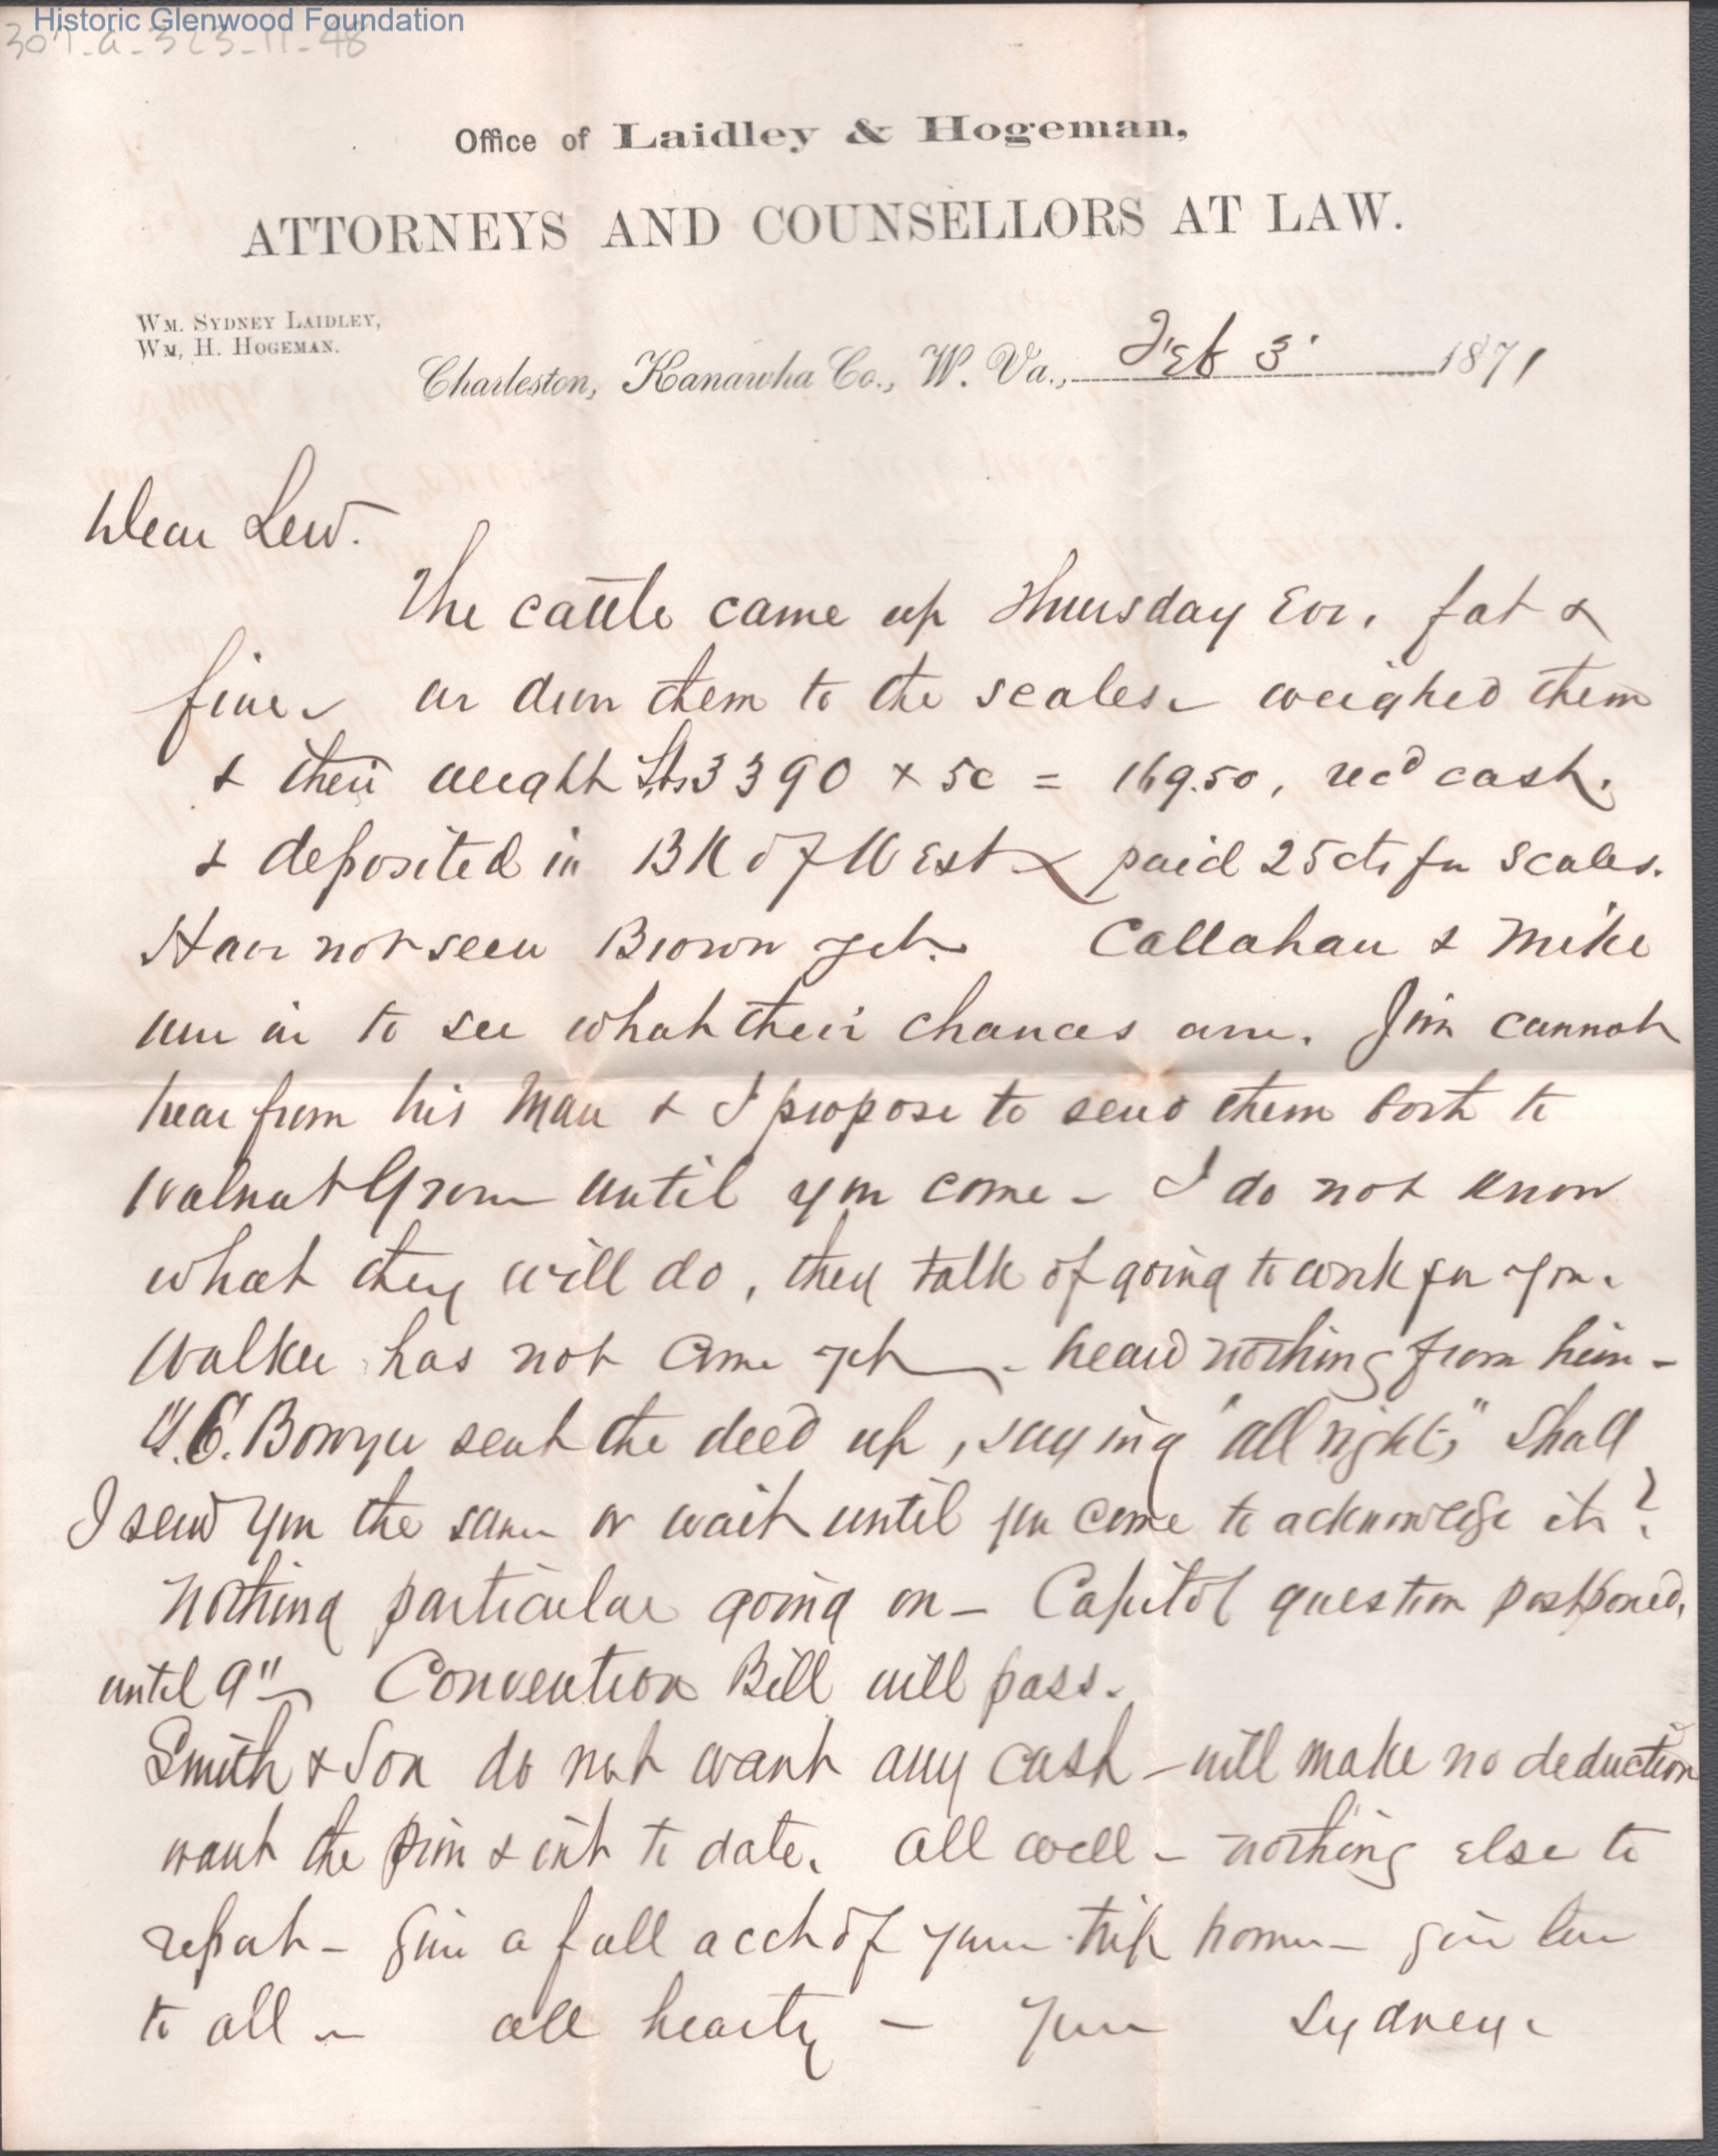 Historic Glenwood Foundation
307-a-323-11-48
Office of Laidley & Hogeman,
ATTORNEYS AND COUNSELLORS AT LAW.
WM. SYDNEY LAIDLEY,
WM, H. HOGEMAN.
Charleston, Kanawha Co., W. Va., Feb 3 1871
Dear Lew.
The cattle came up Thursday Eve, fat &
fine. we driv them to the scales - weighed them
& their weight Lbs 3390 x 5c = 169.50, recd cash.
& deposited in BK of West & paid 25cts for scales.
Have not seen Brown yet. Callahan & Mike
are in to see what their chances are. Jim cannot
hear from his man & I propose to send them both to
Walnut Grove until you come - I do not know
what they will do, they talk of going to work for you.
Walker has not come yet - heard nothing from him -
G. C. Bowyer sent the deed up, saying "all right," Shall
I send you the same or wait until you come to acknowledge it?
Nothing particular going on - Capitol question postponed,
until 9" - Convention Bill will pass.
Smith & Son do not want any cash - will make no deduction
want the prin & int to date. All well - nothing else to
report - Give a full acct of your trip home - give love
to all - all hearty - Your Sydney.